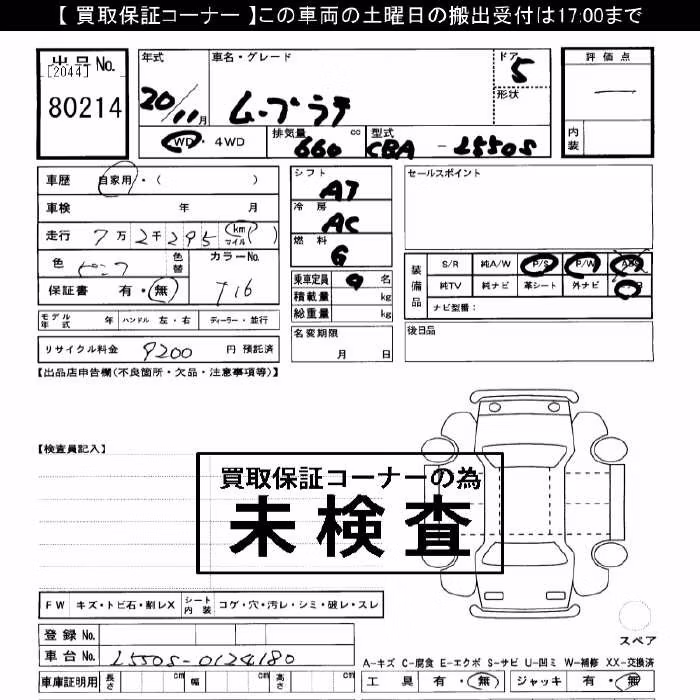 【 買取保証コーナー 】この車両の土曜日の搬出受付は17:00まで
出品 No.
[2044]
80214
年式
20/11月
車名・グレード
ムーブラテ
ドア
5
形状
評価点
内装
WD・4WD
排気量
660 cc
型式
CBA - L550S
車歴 自家用・( )
車検 年 月
走行 7万2千295 (km マイル)
色 ピンク 色替
カラーNo.
T16
保証書 有・無
モデル年式 年 ハンドル 左・右 ディーラー・並行
リサイクル料金 9200 円 預託済
シフト
AT
冷房
AC
燃料
G
乗車定員 名
積載量 kg
総重量 kg
名変期限
月 日
セールスポイント
装備品
S/R 純A/W P/S P/W ABS
純TV 純ナビ 革シート 外ナビ
ナビ型番:
後日品
【出品店申告欄(不良箇所・欠品・注意事項等)】
【検査員記入】
買取保証コーナーの為
未検査
FW キズ・トビ石・割レX シート内装 コゲ・穴・汚レ・シミ・破レ・スレ
登録 No.
車台 No. L550S-0124180
車庫証明用 長さ cm 幅 cm 高さ cm
スペア
A-キズ C-腐食 E-エクボ S-サビ U-凹ミ W-補修 XX-交換済
工具 有・無 ジャッキ 有・無